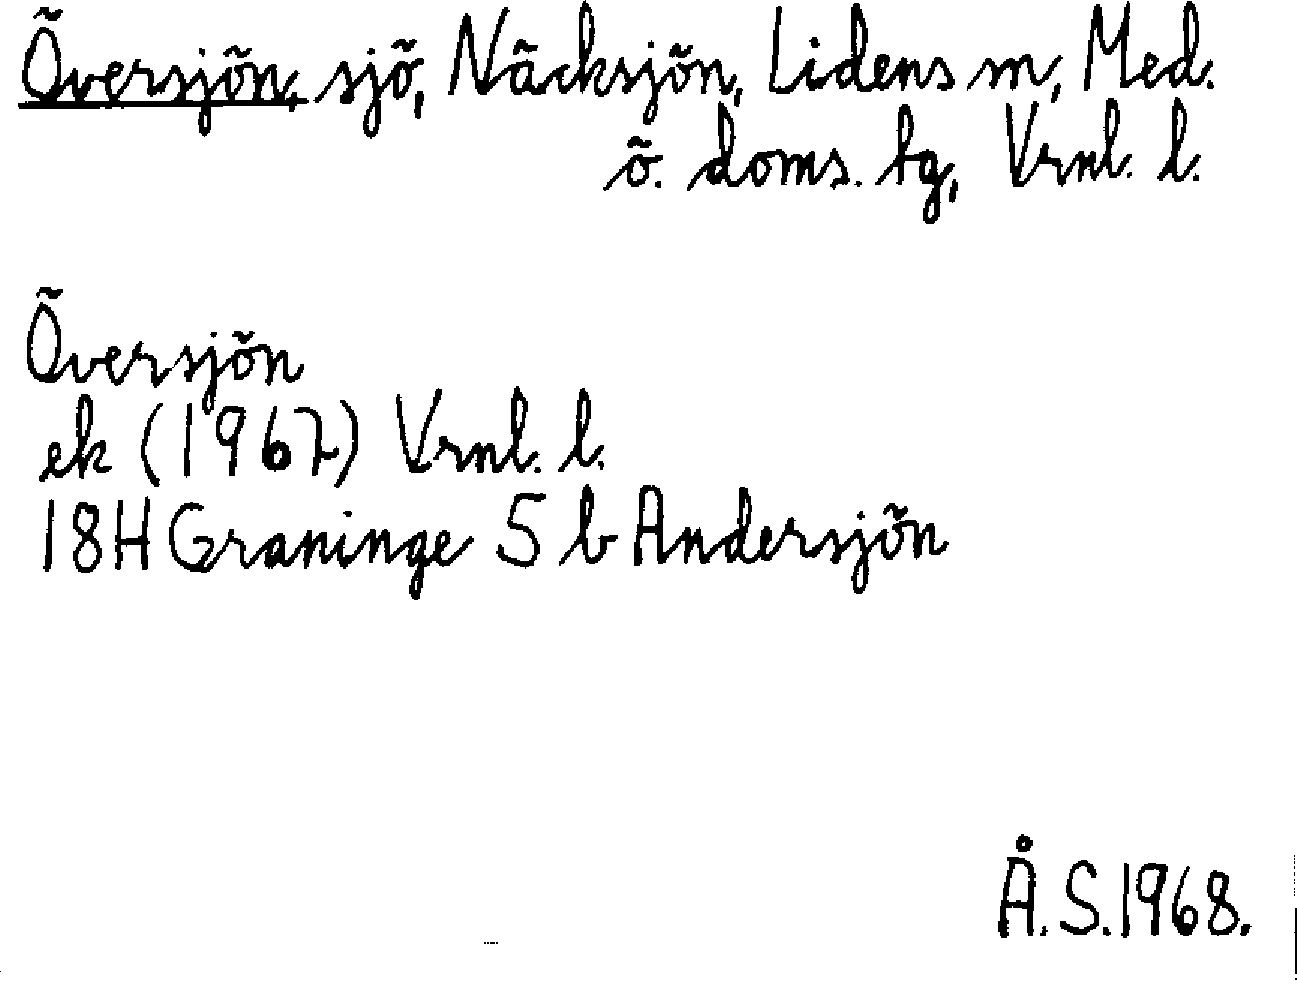 Översjön, sjö, Näcksjön, Lidens sn, Med.
ö. doms. tg, Vrnl. l.
Översjön
ek (1967) Vrnl. l.
18H Graninge 5 b Andersjön
Å.S. 1968.